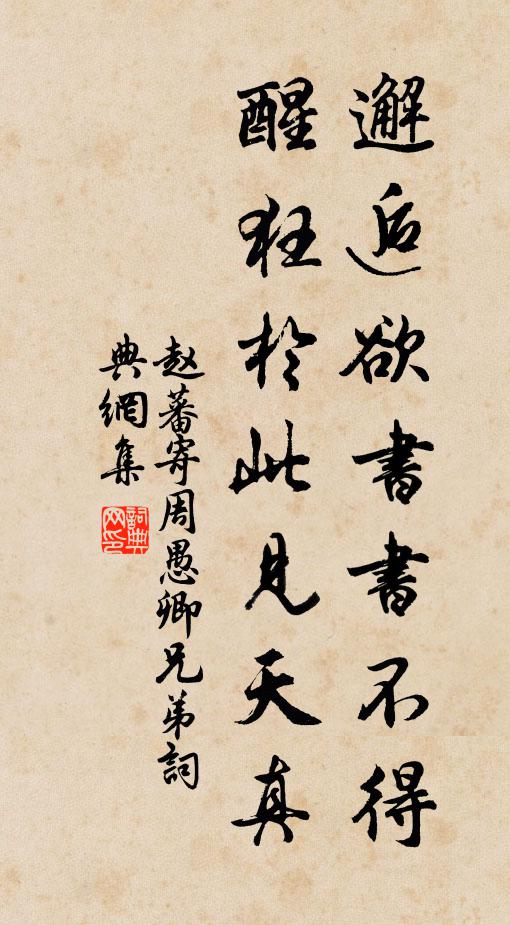 邂逅欲書書不得
醒狂於此見天真
赵蕃寄周愚卿兄弟詞
典網集
詞典
网印